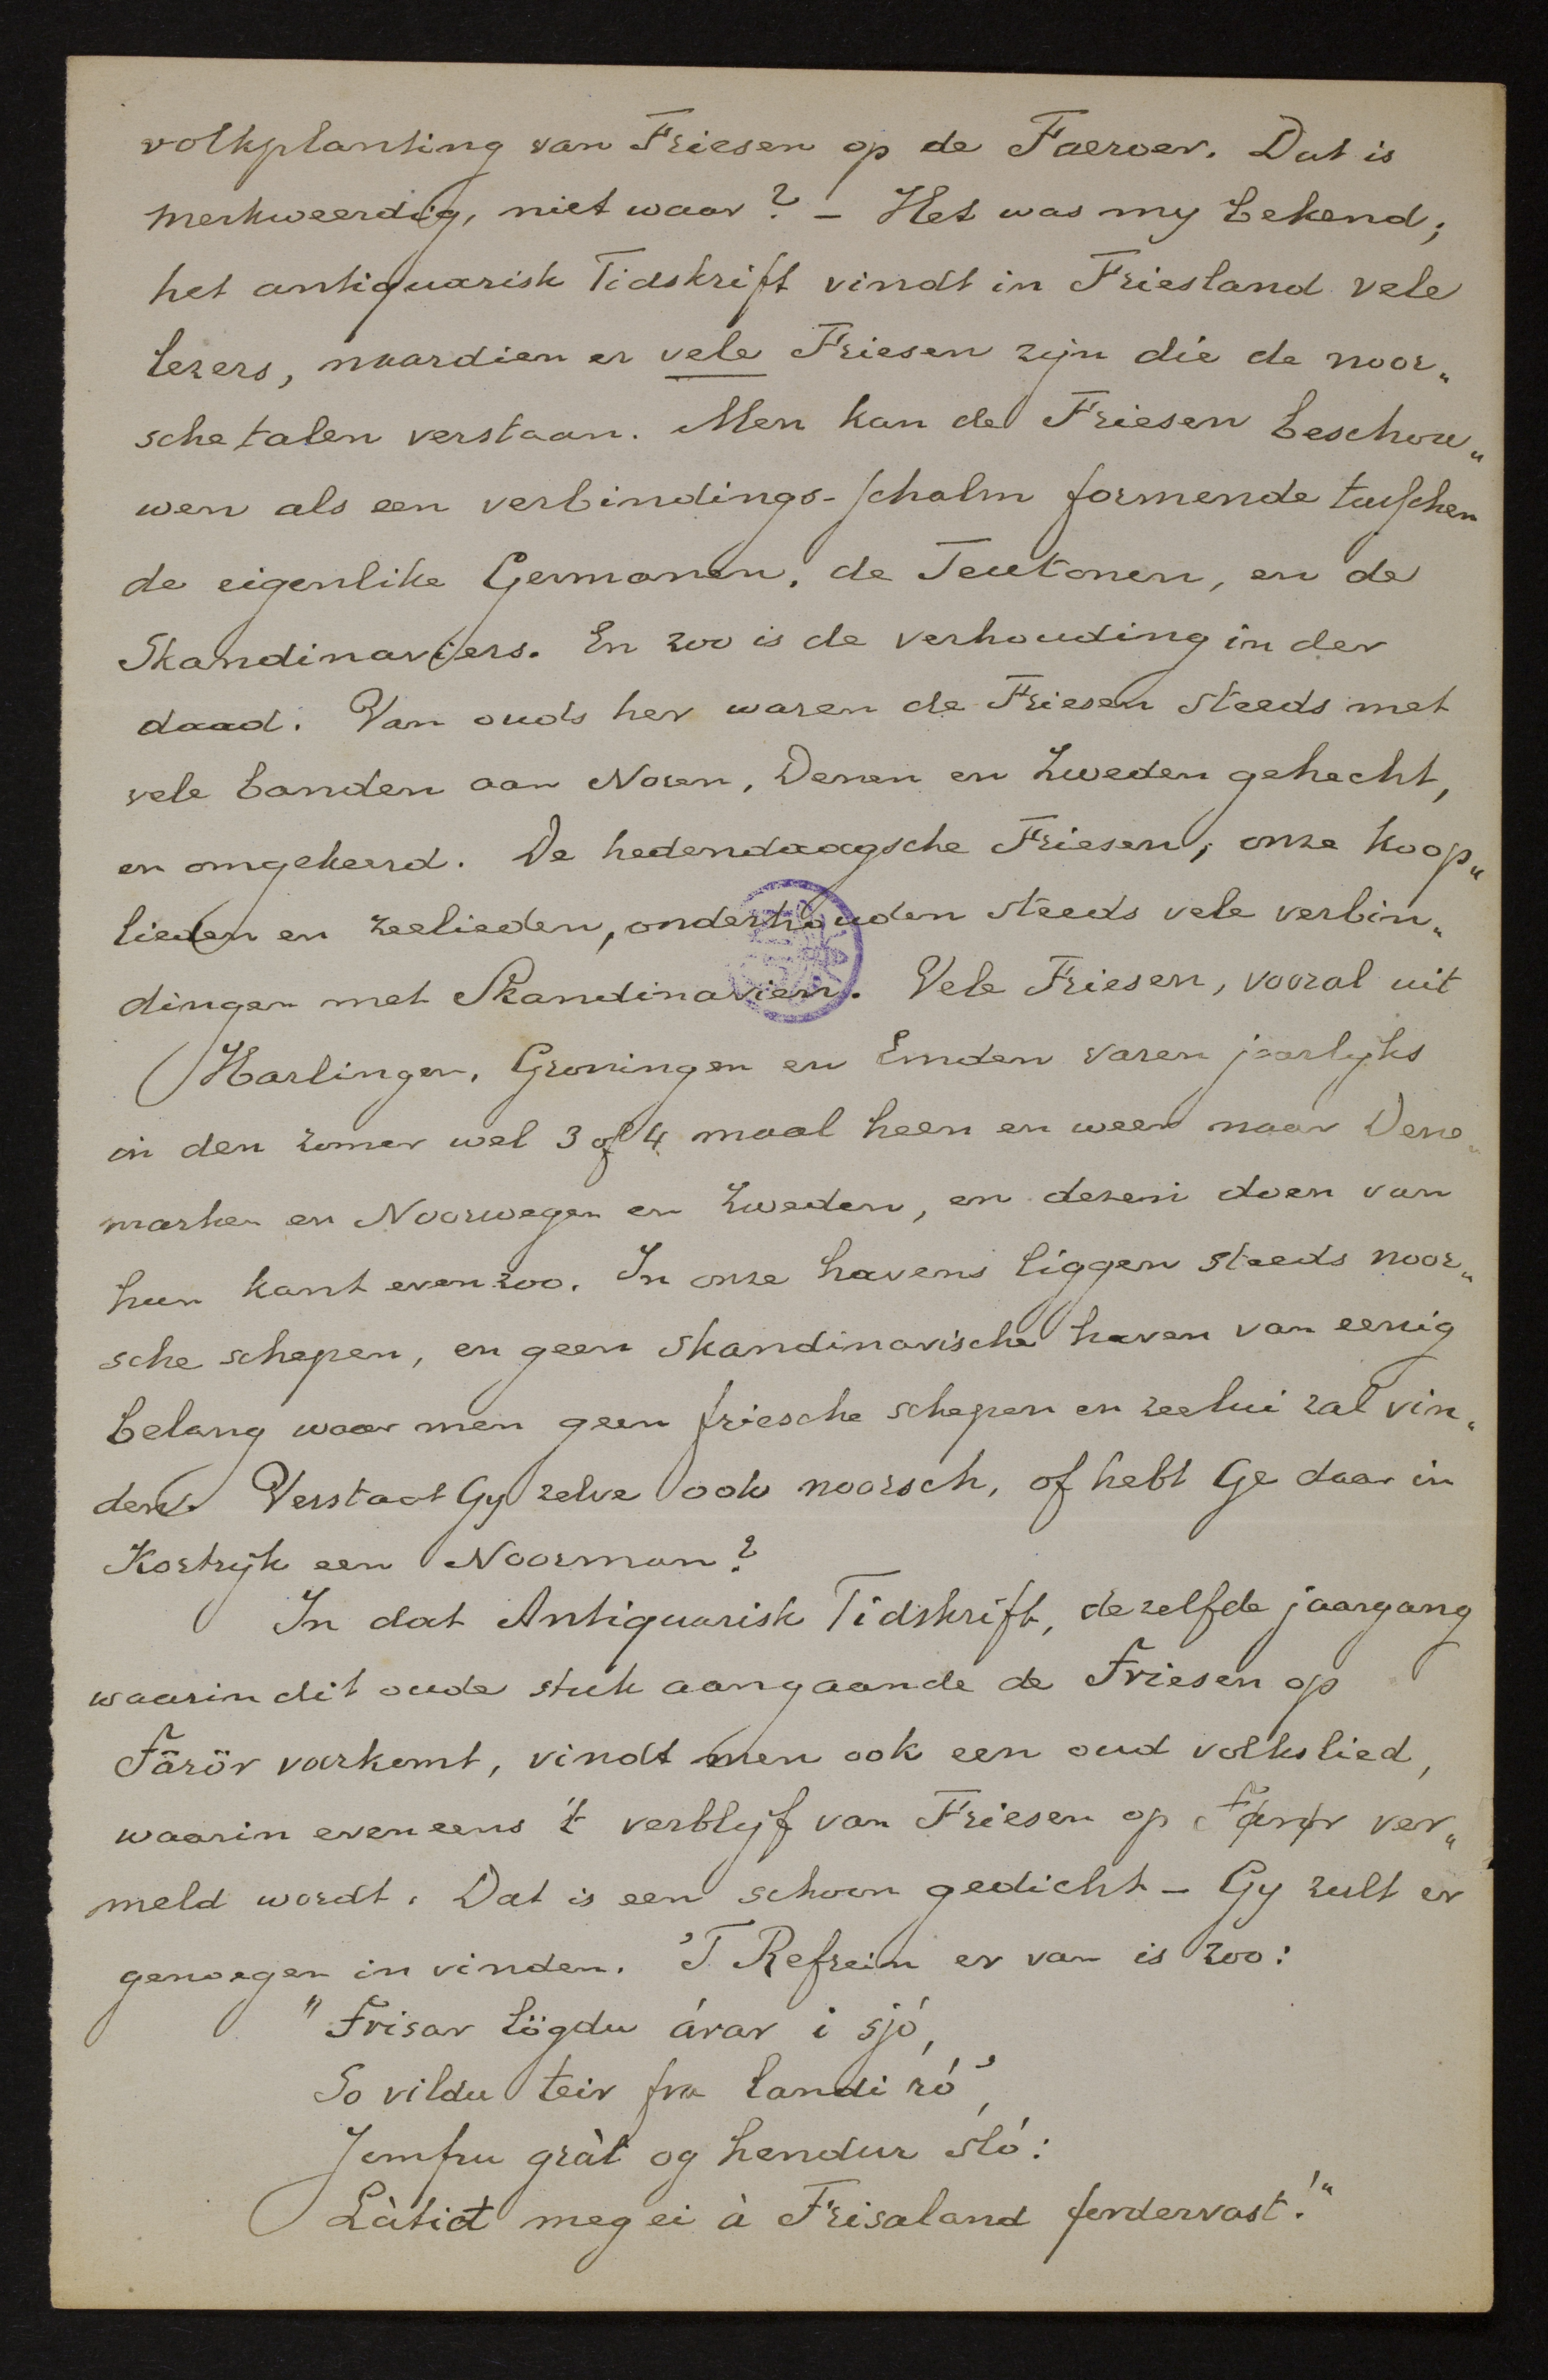 volkplanting van Friesen op de Faeroer. Dat is
merkweerdig, niet waar? – Het was my bekend;
het antiquarisk Tidskrift vindt in Friesland vele
lezers, naardien er vele Friesen zijn die de noor„
sche talen verstaan. Men kan de Friesen beschou„
wen als een verbindings-schalm formende tusschen
de eigenlike Germanen, de Teutonen, en de
Skandinaviers. En zoo is de verhouding in der
daad. Van ouds her waren de Friesen steeds met
vele banden aan Noren, Denen en Zweden gehecht,
en omgekeerd. De hedendaagsche Friesen, onze koop„
lieden en zeelieden, onderhouden steeds vele verbin„
dingen met Skandinavien. Vele Friesen, vooral uit
Harlingen, Groningen en Emden varen jaarlijks
in den zomer wel 3 of 4 maal heen en weer naar Dene„
marken en Noorwegen en Zweden, en dezen doen van
hun kant even zoo. In onze havens liggen steeds noor„
sche schepen, en geen skandinavische haven van eenig
belang waar men geen friesche schepen en zeelui zal vin„
den. Verstaat Gy zelve ook noorsch, of hebt Ge daar in
Kortrijk een Noorman?
In dat Antiquarisk Tidskrift, dezelfde jaargang
waarin dit oude stuk aangaande de Friesen op
Färör voorkomt, vindt men ook een oud volkslied,
waarin eveneens 't verblijf van Friesen op Førør ver„
meld wordt. Dat is een schoon gedicht – Gy zult er
genoegen in vinden. 'T Refrein er van is zoo:
"Frisar lögdu árar i sjó,
So vildu teir fra landi ró',
Jomfru gràt og hendur sló:
Làtið meg ei à Frisaland fordervast!"